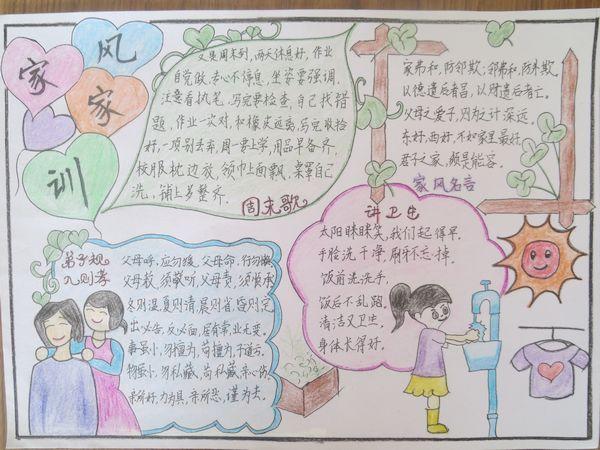 家风
家训
又是周末到,两天休息好,作业
自觉做,专心不停息,坐姿要强调,
注意看执笔,写完要检查,自己找错
题,作业一次对,和橡皮远离,写完收拾
好,一项别丢弃,周一要上学,用品早备齐,
校服枕边放,领巾上面飘,桌罩自己
洗,铺上多整齐.
周末歌
家弟和,防邻欺,邻弟和,防外欺,
以德遗后者昌,以财遗后者亡。
父母之爱子,则为之计深远。
东好,西好,不如家里最好,
君子之家,频是能容。
家风名言
讲卫生
太阳眯眯笑,我们起得早,
手脸洗干净,刷牙不忘掉.
饭前洗洗手,
饭后不乱跑.
清洁又卫生,
身体长得好.
弟子规
入则孝
父母呼,应勿缓,父母命,行勿懒
父母教,须敬听,父母责,须顺承
冬则温,夏则清,晨则省,昏则定
出必告,反必面,居有常,业无变,
事虽小,勿擅为,苟擅为,子道亏,
物虽小,勿私藏,苟私藏,亲心伤,
亲所好,力为具,亲所恶,谨为去,